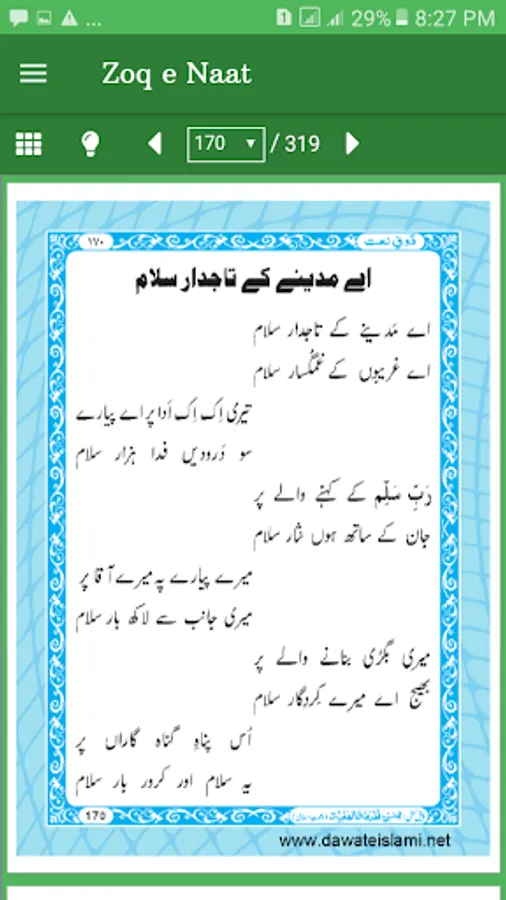 ... 1 29% 8:27 PM
Zoq e Naat
170 / 319
ذوقِ نعت ١٧٠
اے مدینے کے تاجدار سلام
اے مَدینے کے تاجدار سلام
اے غریبوں کے غمگُسار سلام
تیری اِک اِک اَدا پر اے پیارے
سو دُرودیں فدا ہزار سلام
رَبِّ سَلِّم کے کہنے والے پر
جان کے ساتھ ہوں نثار سلام
میرے پیارے پہ میرے آقا پر
میری جانب سے لاکھ بار سلام
میری بگڑی بنانے والے پر
بھیج اے میرے کِردِگار سلام
اُس پناہِ گناہ گاراں پر
یہ سلام اور کرور بار سلام
170
www.dawateislami.net